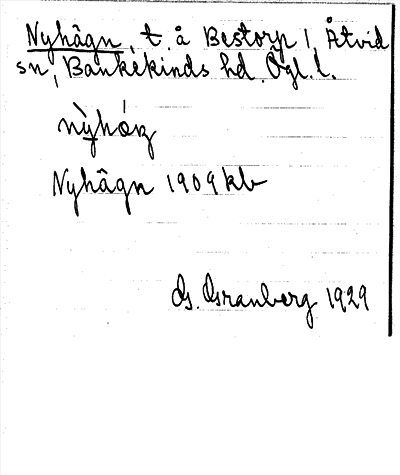 Nyhågn, t. å Bestorp 1, Åtvid
sn, Bankekinds hd. Ögl. l.
Nyhågn 1909 kb
G. Granberg 1929